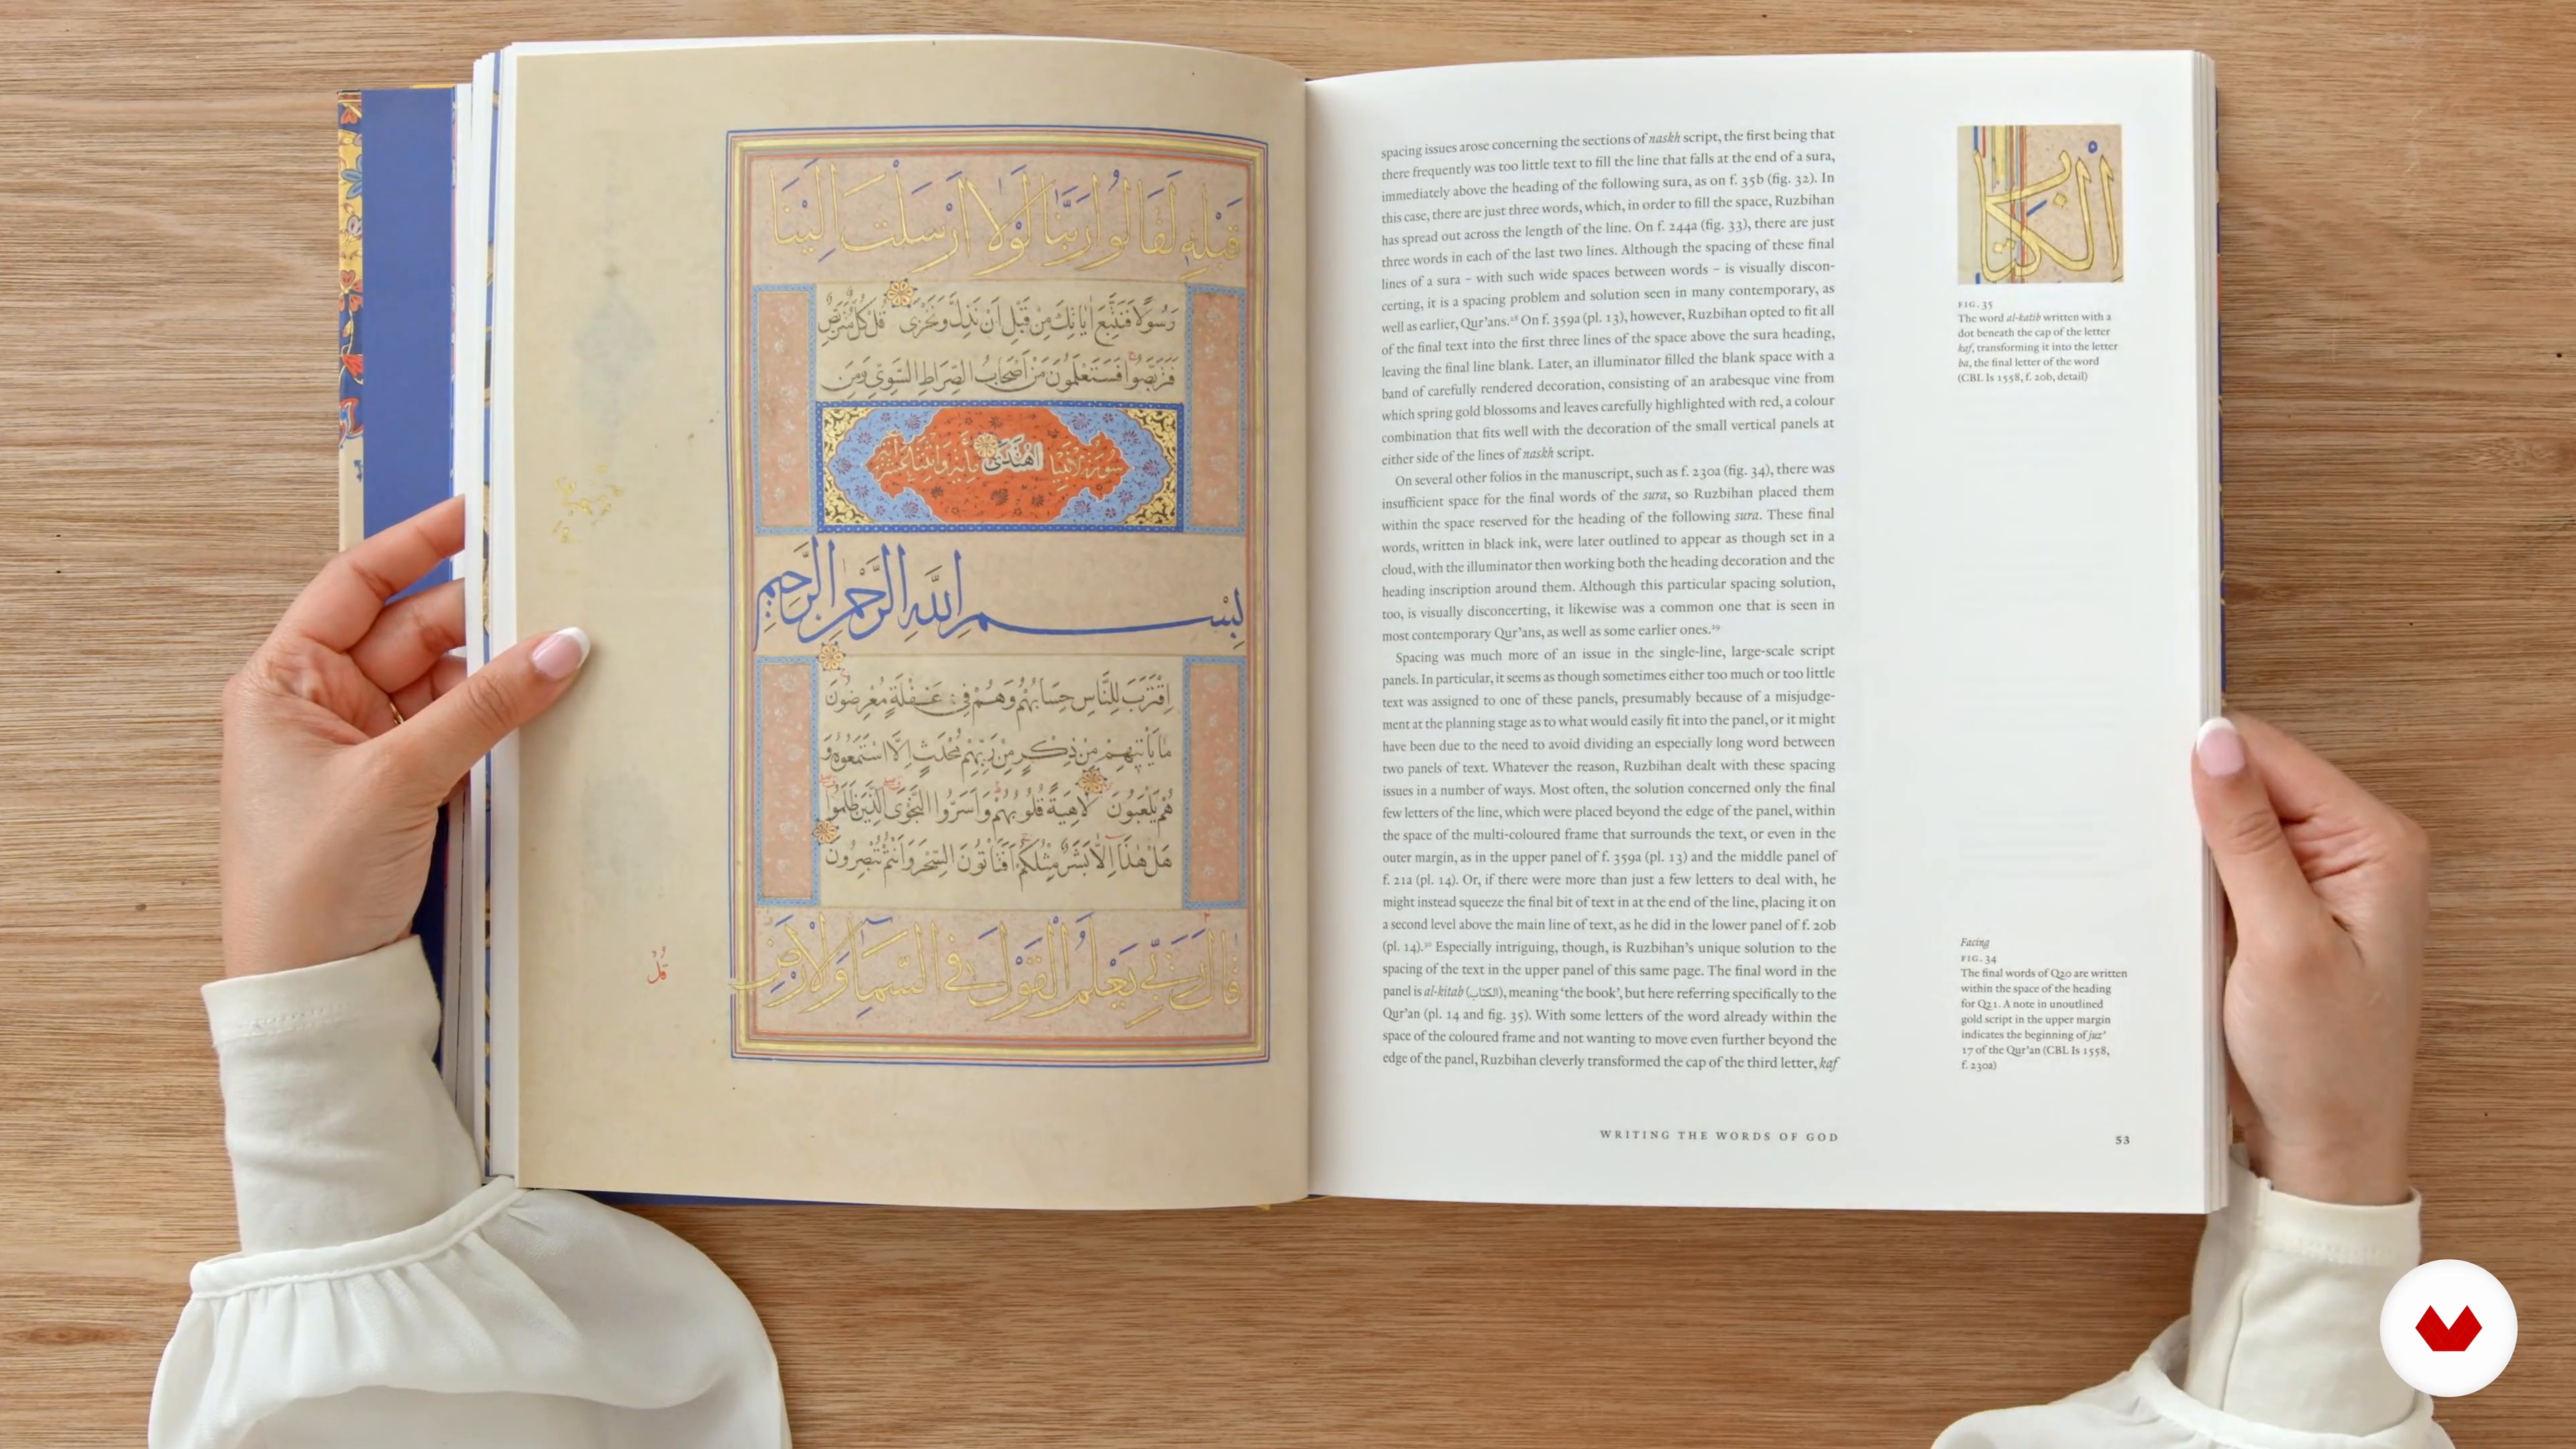 قَبْلِهِ لَقَالُوا رَبَّنَا لَوْلَا أَرْسَلْتَ إِلَيْنَا
رَسُولًا فَنَتَّبِعَ اٰيَاتِكَ مِنْ قَبْلِ اَنْ نَذِلَّ وَنَخْزٰى قُلْ كُلٌّ مُتَرَبِّصٌ
فَتَرَبَّصُوا فَسَتَعْلَمُونَ مَنْ اَصْحَابُ الصِّرَاطِ السَّوِيِّ وَمَنِ
سورة الانبيا اهْتَدٰى مائة واثنتا عشر آية
بِسْمِ اللَّهِ الرَّحْمٰنِ الرَّحِيمِ
اِقْتَرَبَ لِلنَّاسِ حِسَابُهُمْ وَهُمْ فِي غَفْلَةٍ مُعْرِضُونَ
مَا يَأْتِيهِمْ مِنْ ذِكْرٍ مِنْ رَبِّهِمْ مُحْدَثٍ اِلَّا اسْتَمَعُوهُ وَ
هُمْ يَلْعَبُونَ لَاهِيَةً قُلُوبُهُمْ وَاَسَرُّوا النَّجْوَى الَّذِينَ ظَلَمُوا
هَلْ هٰذَا اِلَّا بَشَرٌ مِثْلُكُمْ اَفَتَأْتُونَ السِّحْرَ وَاَنْتُمْ تُبْصِرُونَ
قَالَ رَبِّي يَعْلَمُ الْقَوْلَ فِي السَّمَاءِ وَالْاَرْضِ
قُلْ
spacing issues arose concerning the sections of naskh script, the first being that
there frequently was too little text to fill the line that falls at the end of a sura,
immediately above the heading of the following sura, as on f. 35b (fig. 32). In
this case, there are just three words, which, in order to fill the space, Ruzbihan
has spread out across the length of the line. On f. 244a (fig. 33), there are just
three words in each of the last two lines. Although the spacing of these final
lines of a sura – with such wide spaces between words – is visually discon-
certing, it is a spacing problem and solution seen in many contemporary, as
well as earlier, Qur'ans.28 On f. 359a (pl. 13), however, Ruzbihan opted to fit all
of the final text into the first three lines of the space above the sura heading,
leaving the final line blank. Later, an illuminator filled the blank space with a
band of carefully rendered decoration, consisting of an arabesque vine from
which spring gold blossoms and leaves carefully highlighted with red, a colour
combination that fits well with the decoration of the small vertical panels at
either side of the lines of naskh script.
On several other folios in the manuscript, such as f. 230a (fig. 34), there was
insufficient space for the final words of the sura, so Ruzbihan placed them
within the space reserved for the heading of the following sura. These final
words, written in black ink, were later outlined to appear as though set in a
cloud, with the illuminator then working both the heading decoration and the
heading inscription around them. Although this particular spacing solution,
too, is visually disconcerting, it likewise was a common one that is seen in
most contemporary Qur'ans, as well as some earlier ones.29
Spacing was much more of an issue in the single-line, large-scale script
panels. In particular, it seems as though sometimes either too much or too little
text was assigned to one of these panels, presumably because of a misjudge-
ment at the planning stage as to what would easily fit into the panel, or it might
have been due to the need to avoid dividing an especially long word between
two panels of text. Whatever the reason, Ruzbihan dealt with these spacing
issues in a number of ways. Most often, the solution concerned only the final
few letters of the line, which were placed beyond the edge of the panel, within
the space of the multi-coloured frame that surrounds the text, or even in the
outer margin, as in the upper panel of f. 359a (pl. 13) and the middle panel of
f. 21a (pl. 14). Or, if there were more than just a few letters to deal with, he
might instead squeeze the final bit of text in at the end of the line, placing it on
a second level above the main line of text, as he did in the lower panel of f. 20b
(pl. 14).30 Especially intriguing, though, is Ruzbihan's unique solution to the
spacing of the text in the upper panel of this same page. The final word in the
panel is al-kitab (الكتاب), meaning 'the book', but here referring specifically to the
Qur'an (pl. 14 and fig. 35). With some letters of the word already within the
space of the coloured frame and not wanting to move even further beyond the
edge of the panel, Ruzbihan cleverly transformed the cap of the third letter, kaf
الكتاب
FIG. 35
The word al-katib written with a
dot beneath the cap of the letter
kaf, transforming it into the letter
ba, the final letter of the word
(CBL Is 1558, f. 20b, detail)
Facing
FIG. 34
The final words of Q20 are written
within the space of the heading
for Q21. A note in unoutlined
gold script in the upper margin
indicates the beginning of juz'
17 of the Qur'an (CBL Is 1558,
f. 230a)
WRITING THE WORDS OF GOD
53